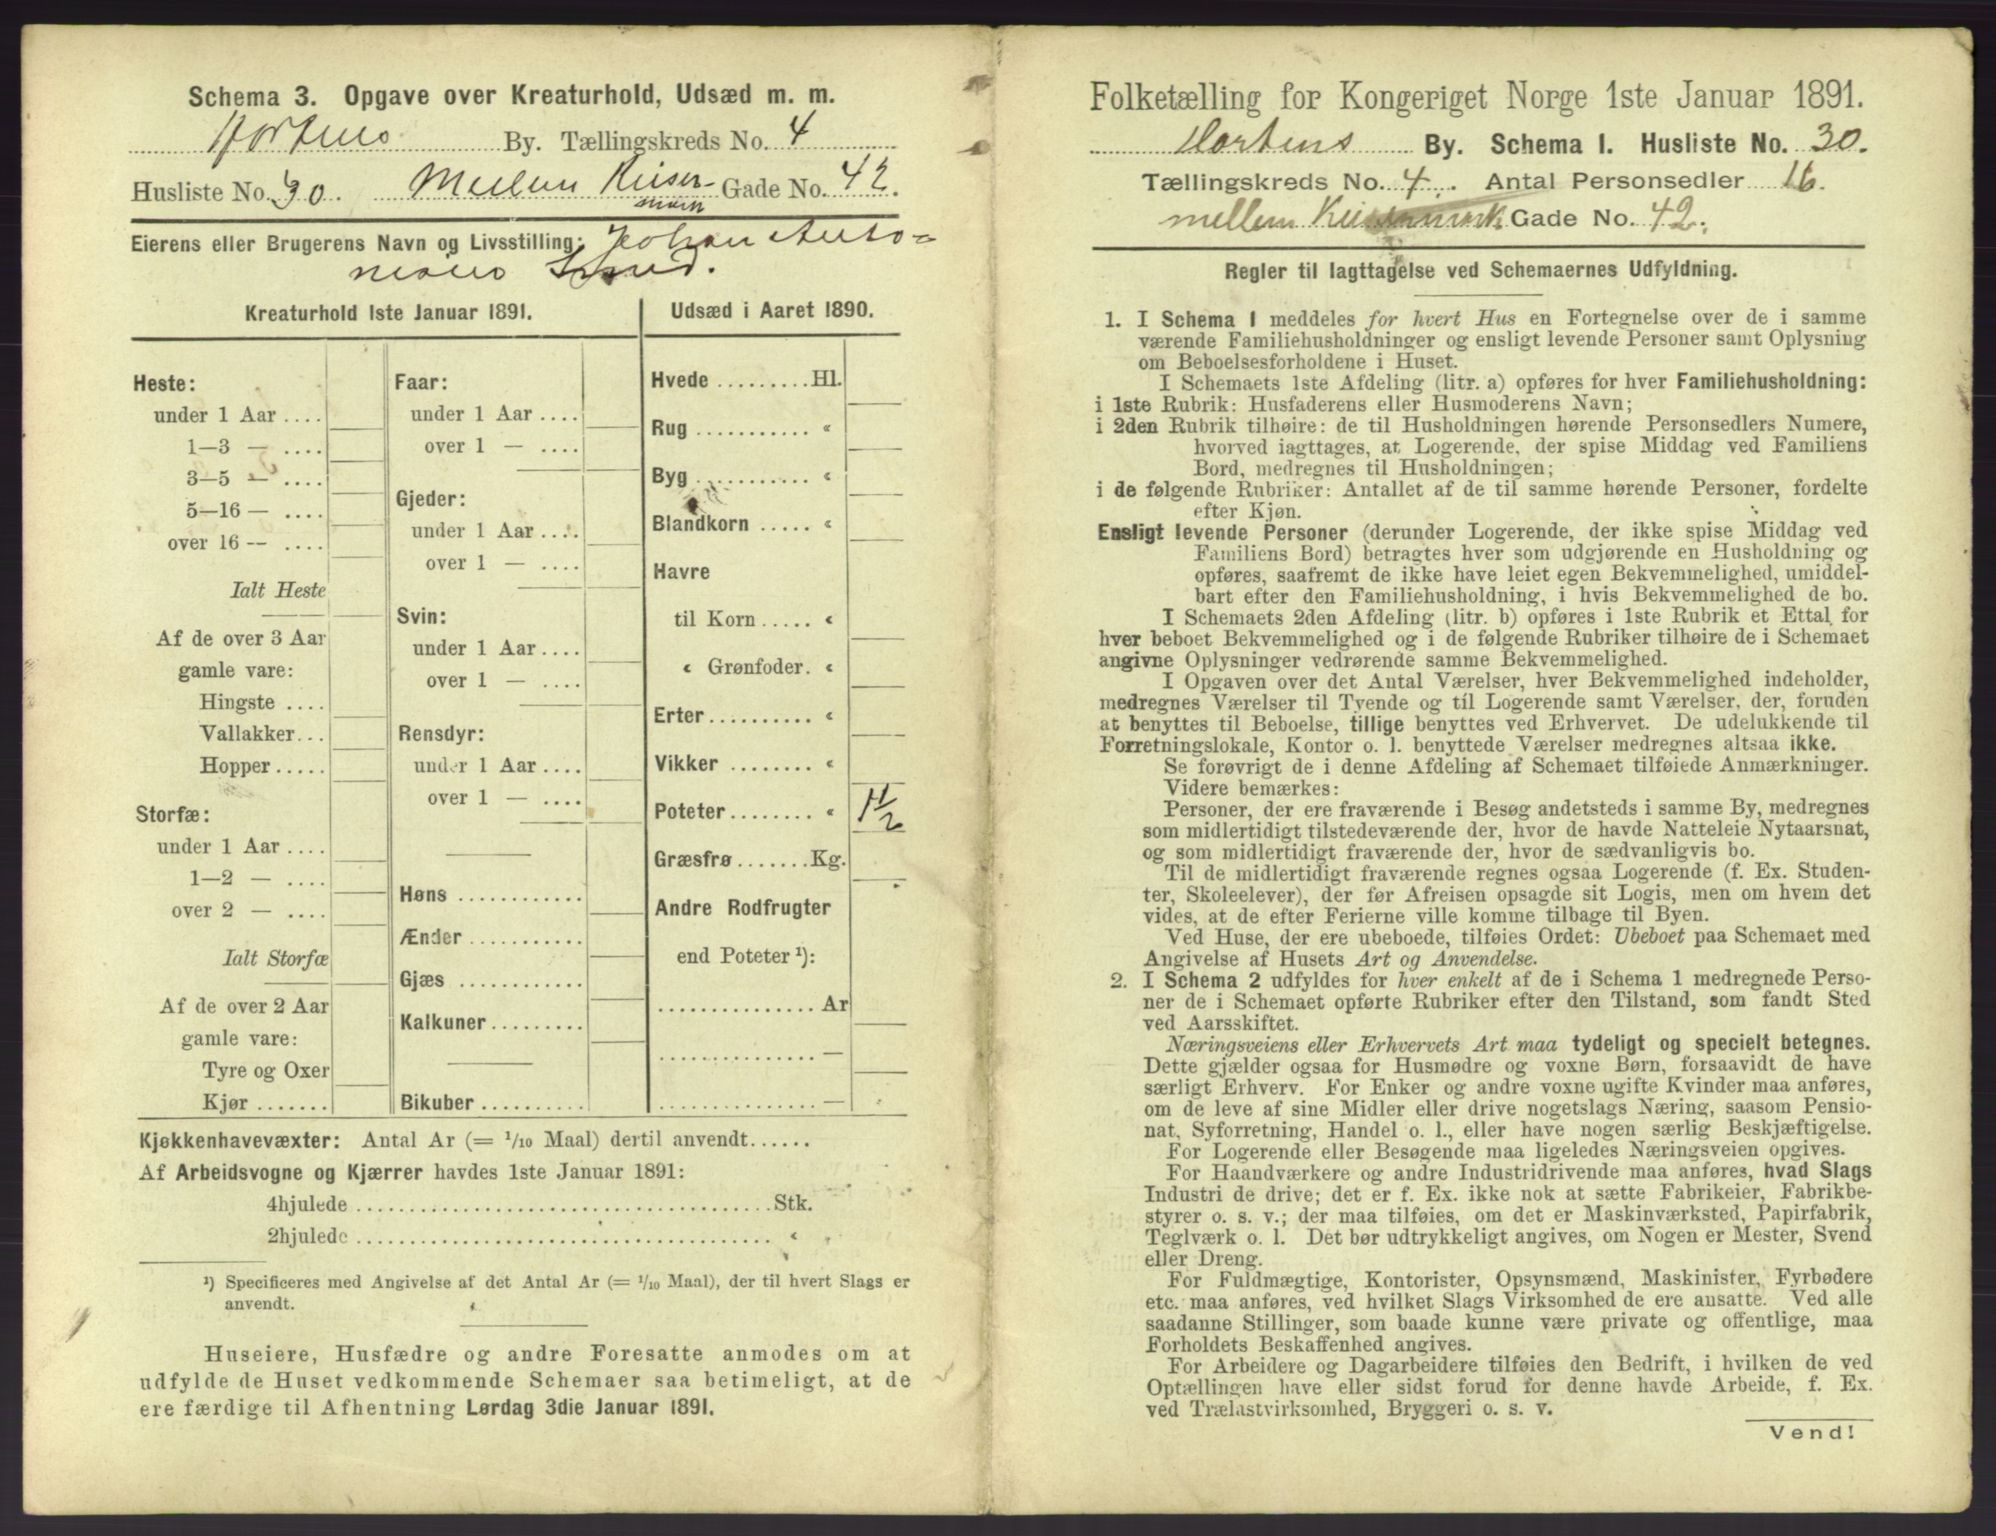 Schema 3. Opgave over Kreaturhold, Udsæd m. m.
Hortens By. Tællingskreds No. 4
Husliste No. 30. Mellem Keiser- Gade No. 42.
mark
Eierens eller Brugerens Navn og Livsstilling: Johan Anto-
nius Smed.
Kreaturhold 1ste Januar 1891.
Heste:
under 1 Aar ....
1—3 — ....
3—5 — ....
5—16 — ....
over 16 — ....
Ialt Heste
Af de over 3 Aar
gamle vare:
Hingste ....
Vallakker...
Hopper.....
Storfæ:
under 1 Aar ....
1—2 — ....
over 2 — ....
Ialt Storfæ
Af de over 2 Aar
gamle vare:
Tyre og Oxer
Kjør .......
Faar:
under 1 Aar ....
over 1 — ....
Gjeder:
under 1 Aar ....
over 1 — ....
Svin:
under 1 Aar ....
over 1 — ....
Rensdyr:
under 1 Aar ....
over 1 — ....
Høns ............
Ænder ...........
Gjæs ............
Kalkuner.........
Bikuber ..........
Udsæd i Aaret 1890.
Hvede .........Hl.
Rug ........... «
Byg ........... «
Blandkorn ..... «
Havre
til Korn ..... «
« Grønfoder. «
Erter.......... «
Vikker ........ «
Poteter........ « 1 1/2
Græsfrø .......Kg.
Andre Rodfrugter
end Poteter ¹):
............... Ar
............... —
............... —
Kjøkkenhavevæxter: Antal Ar (= 1/10 Maal) dertil anvendt......
Af Arbeidsvogne og Kjærrer havdes 1ste Januar 1891:
4hjulede ........................................Stk.
2hjulede ........................................ «
¹) Specificeres med Angivelse af det Antal Ar (= 1/10 Maal), der til hvert Slags er
anvendt.
Huseiere, Husfædre og andre Foresatte anmodes om at
udfylde de Huset vedkommende Schemaer saa betimeligt, at de
ere færdige til Afhentning Lørdag 3die Januar 1891.
Folketælling for Kongeriget Norge 1ste Januar 1891.
Hortens By. Schema I. Husliste No. 30.
Tællingskreds No. 4. Antal Personsedler 16.
mellem Keisermark Gade No. 42.
Regler til Iagttagelse ved Schemaernes Udfyldning.
1. I Schema 1 meddeles for hvert Hus en Fortegnelse over de i samme
værende Familiehusholdninger og ensligt levende Personer samt Oplysning
om Beboelsesforholdene i Huset.
I Schemaets 1ste Afdeling (litr. a) opføres for hver Familiehusholdning:
i 1ste Rubrik: Husfaderens eller Husmoderens Navn;
i 2den Rubrik tilhøire: de til Husholdningen hørende Personsedlers Numere,
hvorved iagttages, at Logerende, der spise Middag ved Familiens
Bord, medregnes til Husholdningen;
i de følgende Rubriker: Antallet af de til samme hørende Personer, fordelte
efter Kjøn.
Ensligt levende Personer (derunder Logerende, der ikke spise Middag ved
Familiens Bord) betragtes hver som udgjørende en Husholdning og
opføres, saafremt de ikke have leiet egen Bekvemmelighed, umiddel-
bart efter den Familiehusholdning, i hvis Bekvemmelighed de bo.
I Schemaets 2den Afdeling (litr. b) opføres i 1ste Rubrik et Ettal for
hver beboet Bekvemmelighed og i de følgende Rubriker tilhøire de i Schemaet
angivne Oplysninger vedrørende samme Bekvemmelighed.
I Opgaven over det Antal Værelser, hver Bekvemmelighed indeholder,
medregnes Værelser til Tyende og til Logerende samt Værelser, der, foruden
at benyttes til Beboelse, tillige benyttes ved Erhvervet. De udelukkende til
Forretningslokale, Kontor o. l. benyttede Værelser medregnes altsaa ikke.
Se forøvrigt de i denne Afdeling af Schemaet tilføiede Anmærkninger.
Videre bemærkes:
Personer, der ere fraværende i Besøg andetsteds i samme By, medregnes
som midlertidigt tilstedeværende der, hvor de havde Natteleie Nytaarsnat,
og som midlertidigt fraværende der, hvor de sædvanligvis bo.
Til de midlertidigt fraværende regnes ogsaa Logerende (f. Ex. Studen-
ter, Skoleelever), der før Afreisen opsagde sit Logis, men om hvem det
vides, at de efter Ferierne ville komme tilbage til Byen.
Ved Huse, der ere ubeboede, tilføies Ordet: Ubeboet paa Schemaet med
Angivelse af Husets Art og Anvendelse.
2. I Schema 2 udfyldes for hver enkelt af de i Schema 1 medregnede Perso-
ner de i Schemaet opførte Rubriker efter den Tilstand, som fandt Sted
ved Aarsskiftet.
Næringsveiens eller Erhvervets Art maa tydeligt og specielt betegnes.
Dette gjælder ogsaa for Husmødre og voxne Børn, forsaavidt de have
særligt Erhverv. For Enker og andre voxne ugifte Kvinder maa anføres,
om de leve af sine Midler eller drive nogetslags Næring, saasom Pensio-
nat, Syforretning, Handel o. l., eller have nogen særlig Beskjæftigelse.
For Logerende eller Besøgende maa ligeledes Næringsveien opgives.
For Haandværkere og andre Industridrivende maa anføres, hvad Slags
Industri de drive; det er f. Ex. ikke nok at sætte Fabrikeier, Fabrikbe-
styrer o. s. v.; der maa tilføies, om det er Maskinværksted, Papirfabrik,
Teglværk o. l. Det bør udtrykkeligt angives, om Nogen er Mester, Svend
eller Dreng.
For Fuldmægtige, Kontorister, Opsynsmænd, Maskinister, Fyrbødere
etc. maa anføres, ved hvilket Slags Virksomhed de ere ansatte. Ved alle
saadanne Stillinger, som baade kunne være private og offentlige, maa
Forholdets Beskaffenhed angives.
For Arbeidere og Dagarbeidere tilføies den Bedrift, i hvilken de ved
Optællingen have eller sidst forud for denne havde Arbeide, f. Ex.
ved Trælastvirksomhed, Bryggeri o. s. v.
Vend!